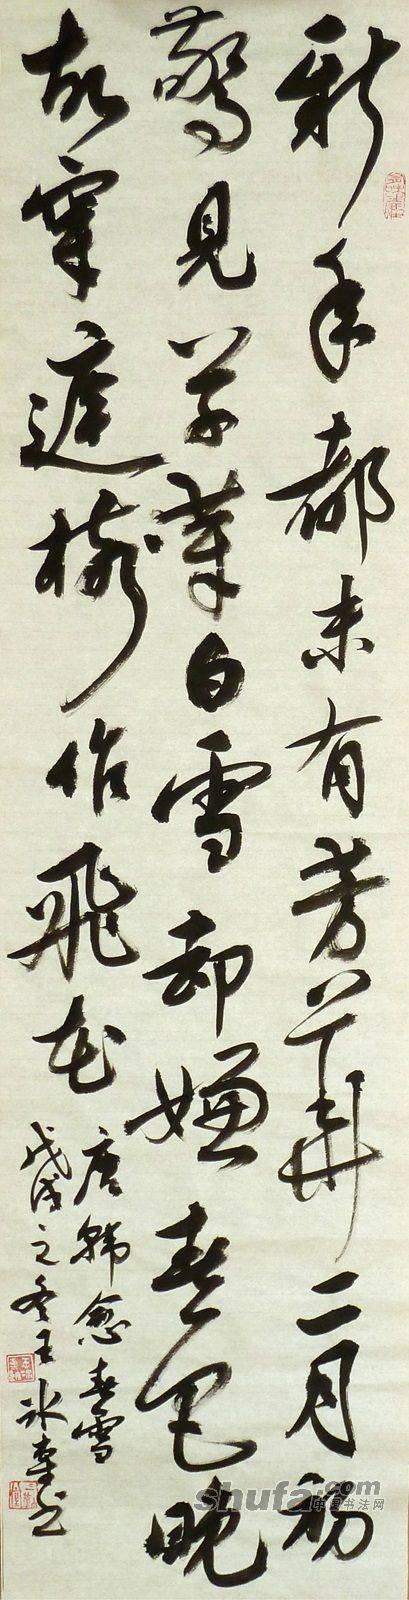 新年都未有芳華二月初
驚見草芽白雪却嫌春色晚
故穿庭樹作飛花
唐韓愈春雪
戊戌之冬王冰书
shufa.com
中国书法网